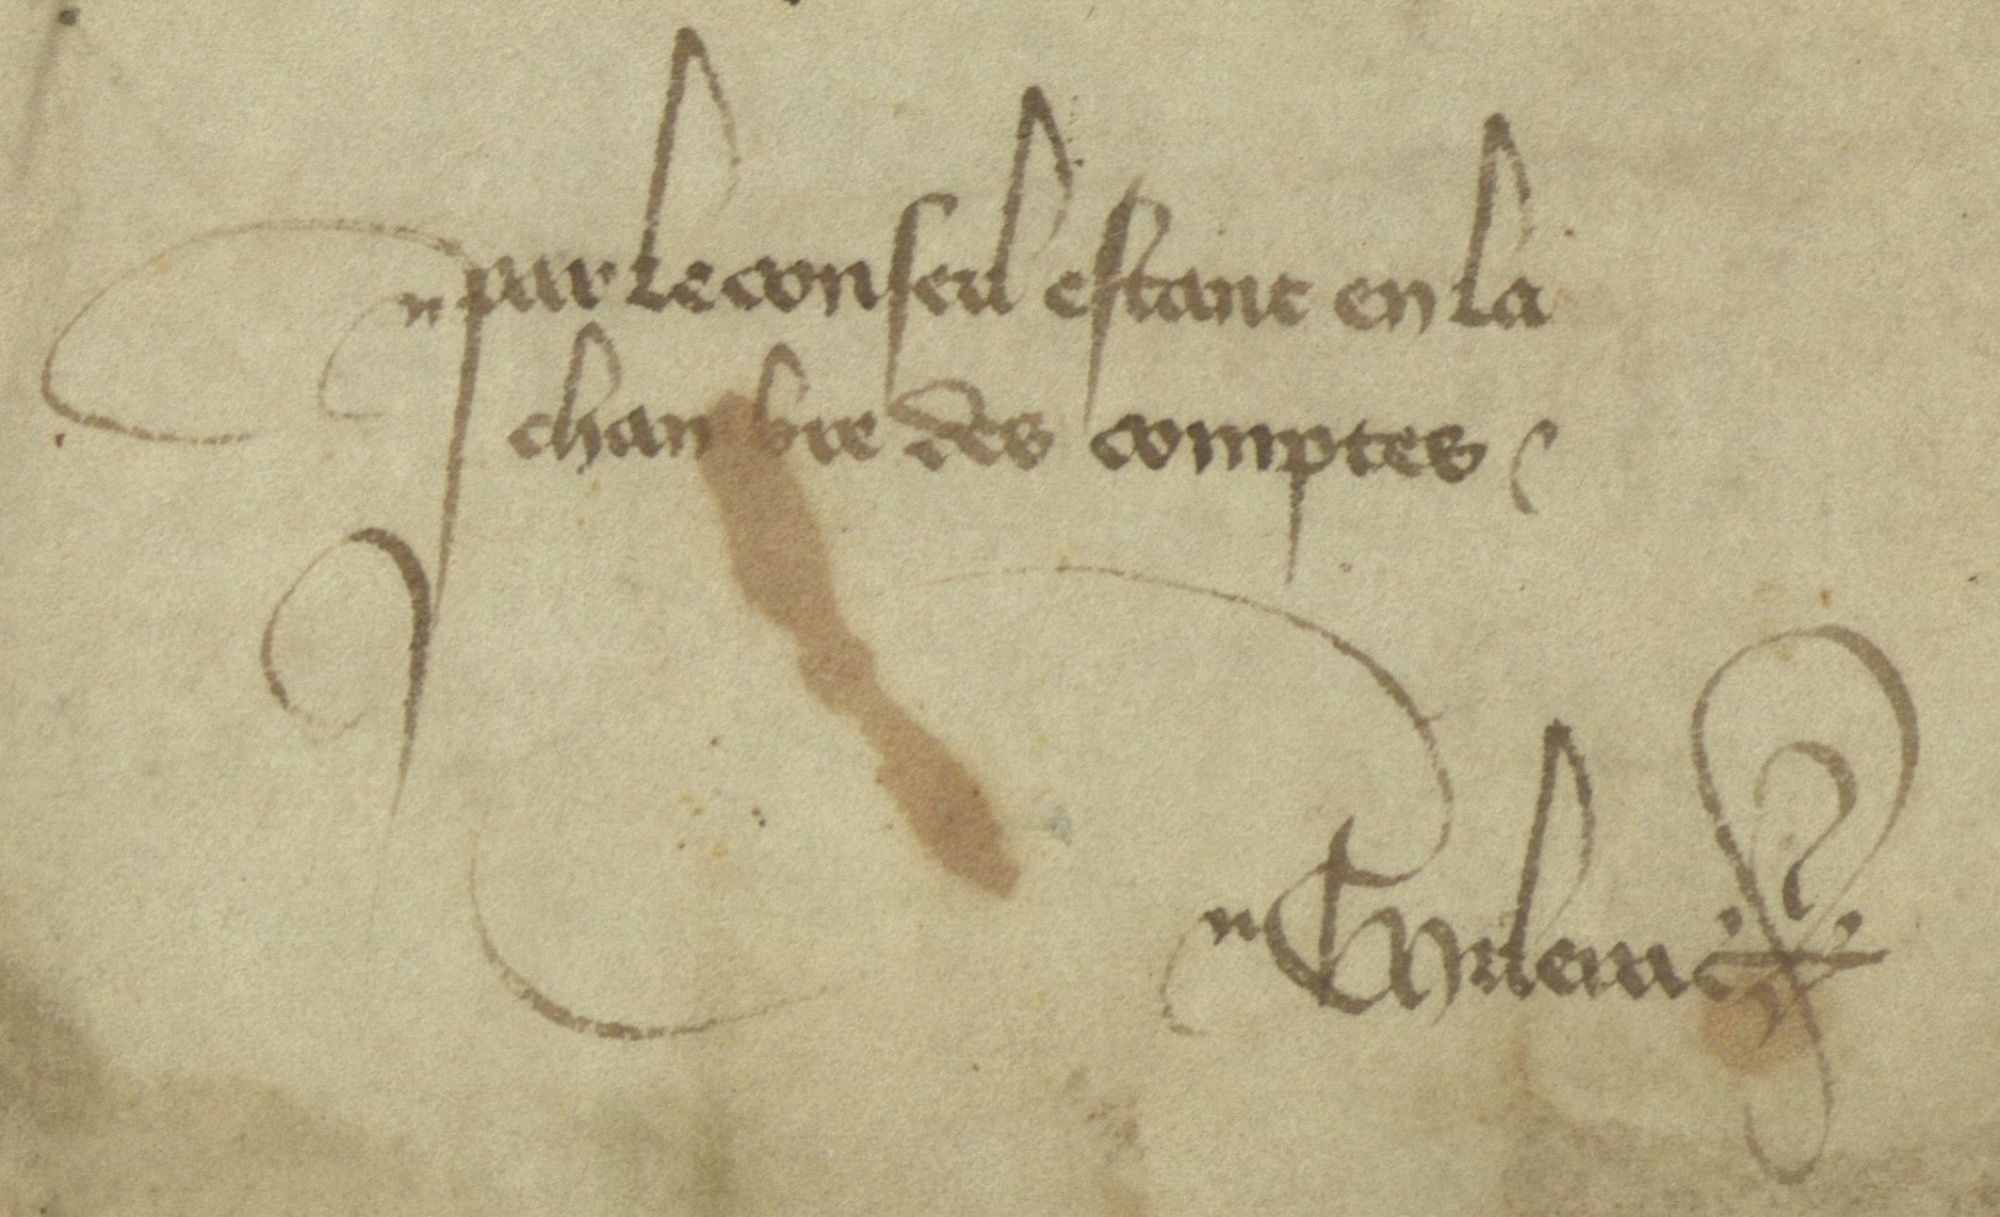 par le conseil estant en la
chambre des comptes